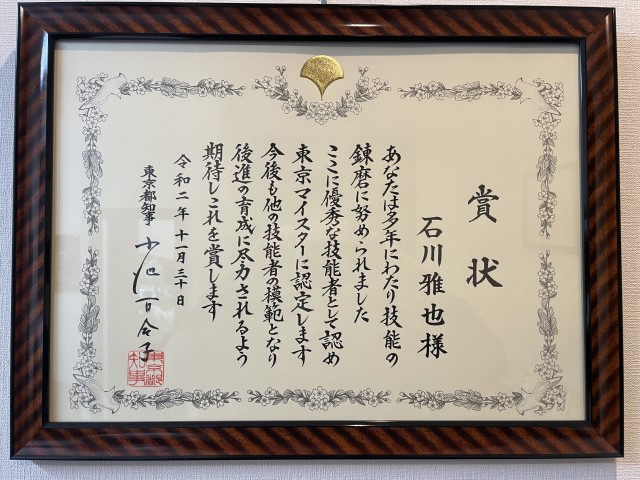 賞状
石川雅也様
あなたは多年にわたり技能の
錬磨に努められました
ここに優秀な技能者として認め
東京マイスターに認定します
今後も他の技能者の模範となり
後進の育成に尽力されるよう
期待しこれを賞します
令和二年十一月三十日
東京都知事 小池百合子
東京都知事